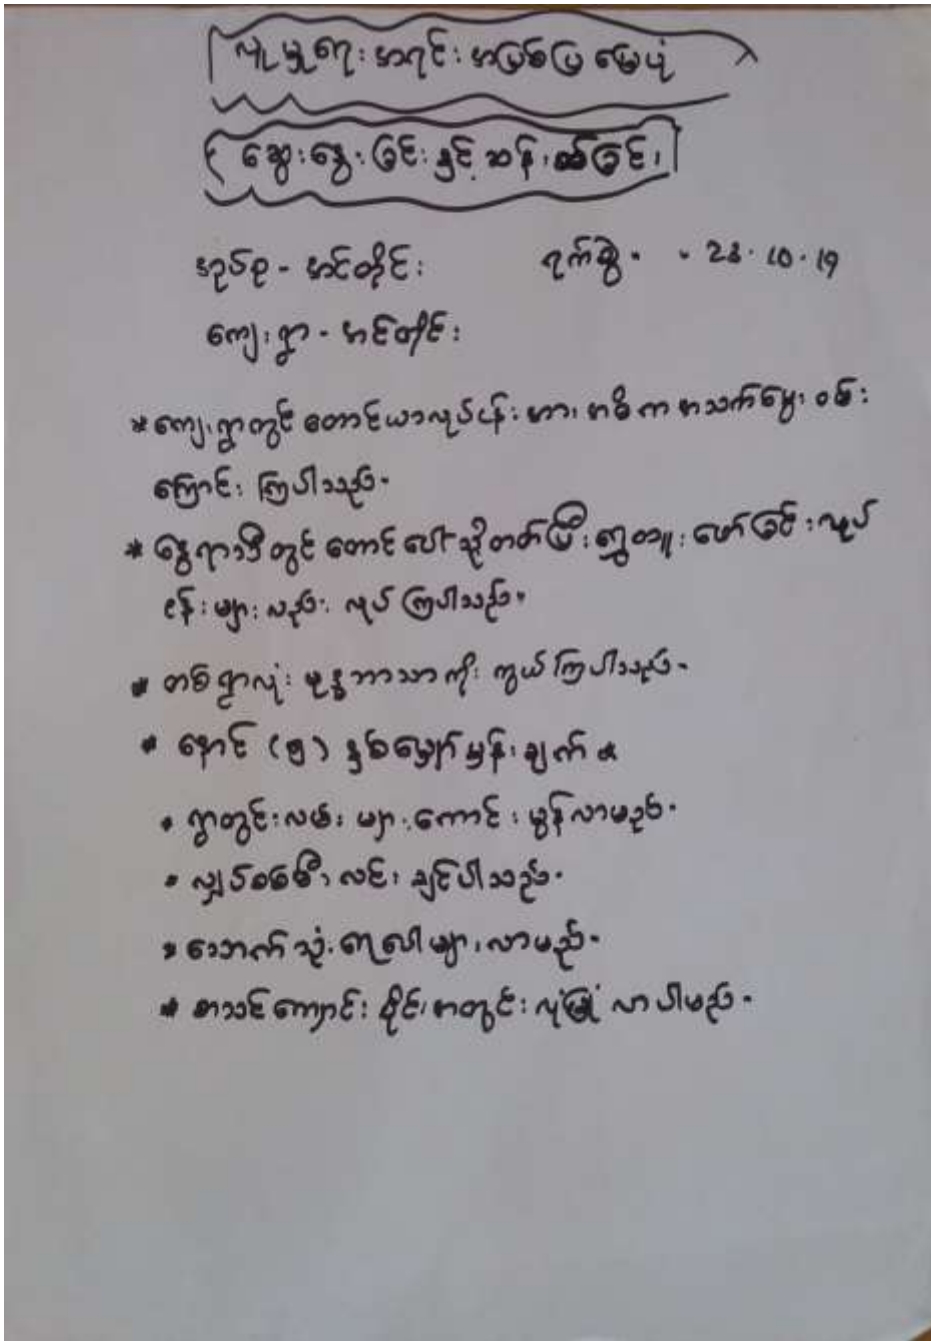 လူမှုရေးအရင်းအမြစ်ပြမြေပုံ
ဆွေးနွေးခြင်းနှင့်ဆန်းစစ်ခြင်း
အုပ်စု - အင်တိုင်း ရက်စွဲ - - 23.10.19
ကျေးရွာ - အင်တိုင်း
* ကျေးရွာတွင် တောင်ယာလုပ်ငန်းအား အဓိက အသက်မွေးဝမ်း
ကြောင်းကြပါသည်။
* နွေရာသီတွင် တောင်ပေါ်သို့တတ်ပြီး ရွှေတူးဖော်ခြင်းလုပ်
ငန်းများလည်း လုပ်ကြပါသည်။
* တစ်ရွာလုံး ဗုဒ္ဓဘာသာကိုးကွယ်ကြပါသည်။
* နောင် (၅) နှစ်မျှော်မှန်းချက်
• ရွာတွင်းလမ်းများကောင်းမွန်လာမည်။
• လျှပ်စစ်မီးလင်းချင်ပါသည်။
• သောက်သုံးရေပေါများလာမည်။
* စာသင်ကျောင်းဝိုင်းအတွင်းလုံခြုံလာပါမည်။